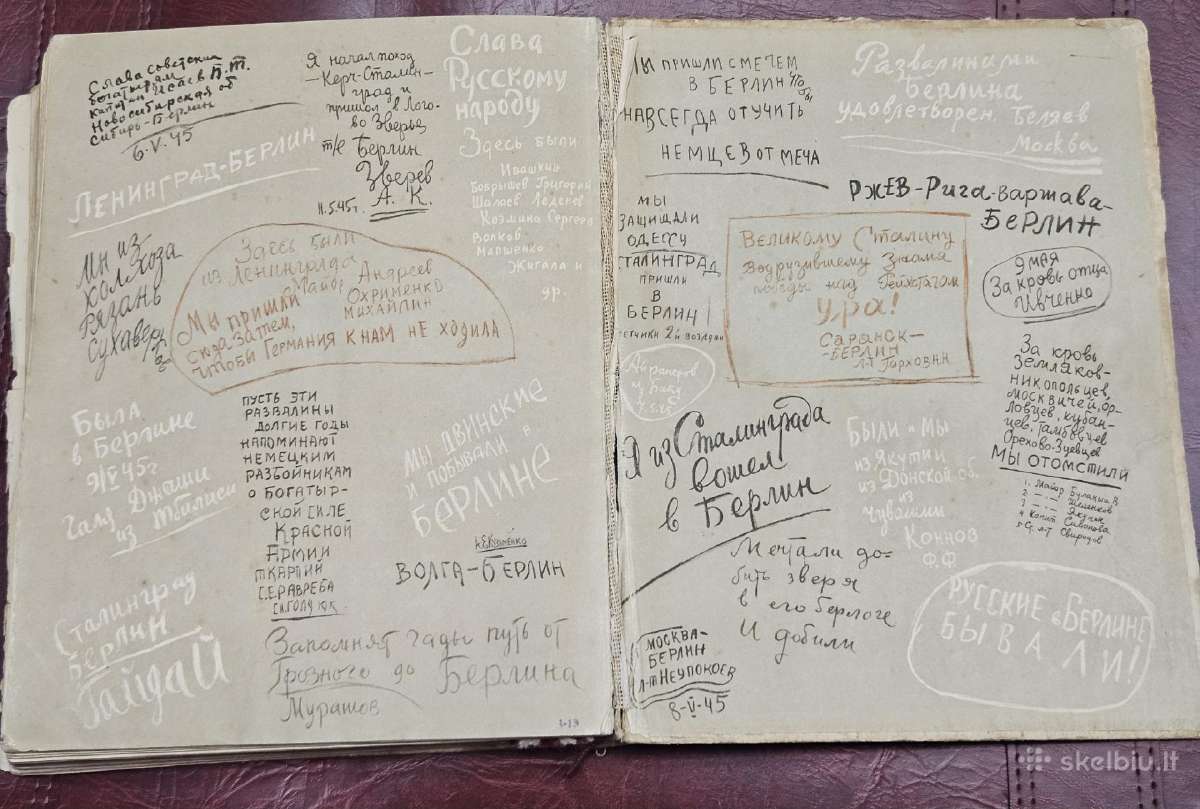 Слава советским
богатырям
капитан Исаев П.Т.
Новосибирская об
Сибирь-Берлин
6.V.45
Я начал поход
-Керч-Сталин-
град и
пришол в Лого-
во Зверье
т/е Берлин
Зверев
А. К.
11.5.45г.
Слава
Русскому
народу
Здесь были
Ивашкин
Бобрышев Григорий
Шалаев Леденев
Козмина Сергеев
Волков
Марченко
Жигала и
др.
Ленинград-Берлин
Мы из
колхоза
Рязань
Сухаверх
Здесь были
из Ленинграда
Майор Андреев
Охрименко
Михайлин
Мы пришли
сюда затем,
чтобы Германия к нам не ходила
Была
в Берлине
9/V 45г
Галя Джаши
из Тбилиси
пусть эти
развалины
долгие годы
напоминают
немецким
разбойникам
о богатыр-
ской силе
Красной
Армии
ткарпий
сержвреба
сиголуюк
Мы Двинские
и побывали в
Берлине
Волга-Берлин
Сталинград
Берлин
Гайдай
Запомнят гады путь от
Грозного до Берлина
Мурашов
1-13
Мы пришли с мечем
в Берлин что бы
навсегда отучить
немцев от меча
Развалинами
Берлина
удовлетворен. Беляев
Москва
Мы
защищали
Одессу
Сталинград
пришли
в
Берлин
Ржев-Рига-Варжава-
Берлин
Великому Сталину
Водрузившему Знамя
победы над Рейхстагом
Ура!
Саранск-
-Берлин
Л-т Гархован
9 мая
За кровь отца
Ивченко
Айрапетов
из Баку
9.5.45
За кровь
земляков-
никопольцев,
москвичей, ор-
ловцев, кубан-
цев, тамбовцев
Орехово-Зуевцев
Мы отомстили
1. Майор Булакин В
2 —·— Шеленков
3 —·— Якунин
4 Капит Сивонова
5 Ст. л-т Свиридов
Я из Сталинграда
вошел
в Берлин
Были и мы
из Якутии
из Донской об
из
Чувашии
Коннов
Ф.Ф
Мечтали до-
бить зверя
в его берлоге
И добили
Русские в Берлине
бывали!
Москва-
Берлин
л-т Неупокоев
8-V-45
skelbiu.lt